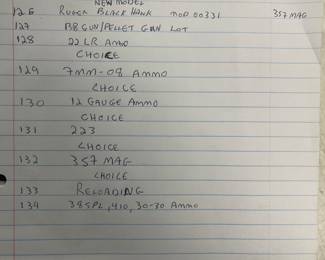 NEW MODEL
126 RUGER BLACK HAWK MOD 00331 357 MAG
127 BB GUN/PELLET GUN LOT
128 22 LR AMMO
CHOICE
129 7MM-08 AMMO
CHOICE
130 12 GAUGE AMMO
CHOICE
131 223
CHOICE
132 357 MAG
CHOICE
133 RELOADING
134 38SPL, 410, 30-30 AMMO